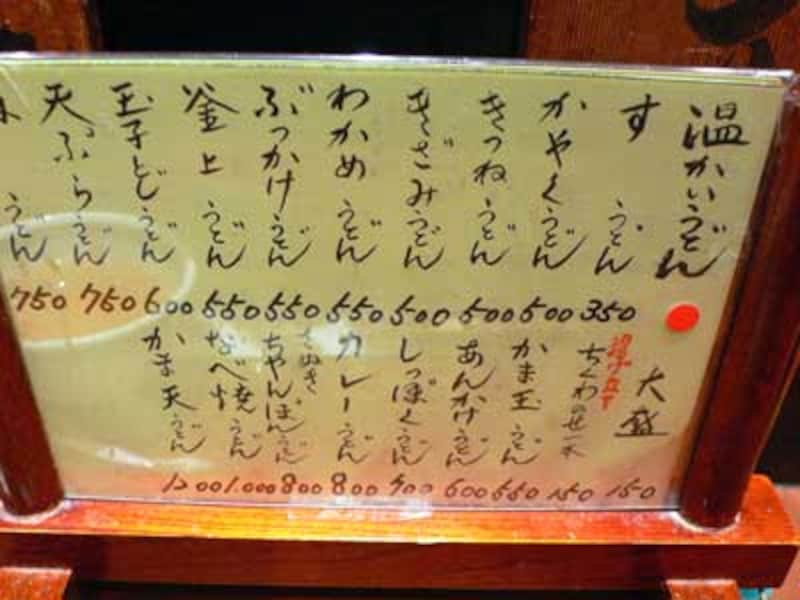 温かいうどん
すうどん 350
かやくうどん 500
きつねうどん 500
きざみうどん 500
わかめうどん 550
ぶっかけうどん 550
釜上うどん 550
玉子とじうどん 600
天ぷらうどん 750
うどん 750
大盛 150
ちくわの世一本 150
かま玉うどん 550
あんかけうどん 600
しっぽくうどん 700
カレーうどん 800
さぬきちゃんぽんうどん 800
なべ焼うどん 1.000
かま天うどん